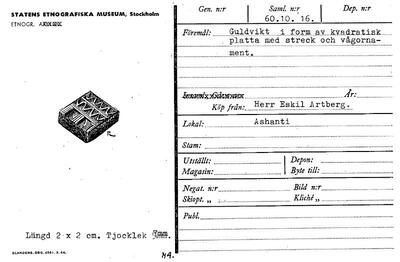 STATENS ETNOGRAFISKA MUSEUM, Stockholm
ETNOGR.
Längd 2 x 2 cm. Tjocklek
Gen. n:r
Saml. n:r
60.10. 16.
Dep. n:r
Föremål: Guldvikt i form av kvadratisk
platta med streck och vågorna-
ment.
År:
Köp från: Herr Eskil Artberg.
Lokal: Ashanti
Stam:
Utställt:
Depon:
Magasin:
Byte till:
Negat. n:r
Bild n:r
Skiopt. „
Kliché „
Publ.